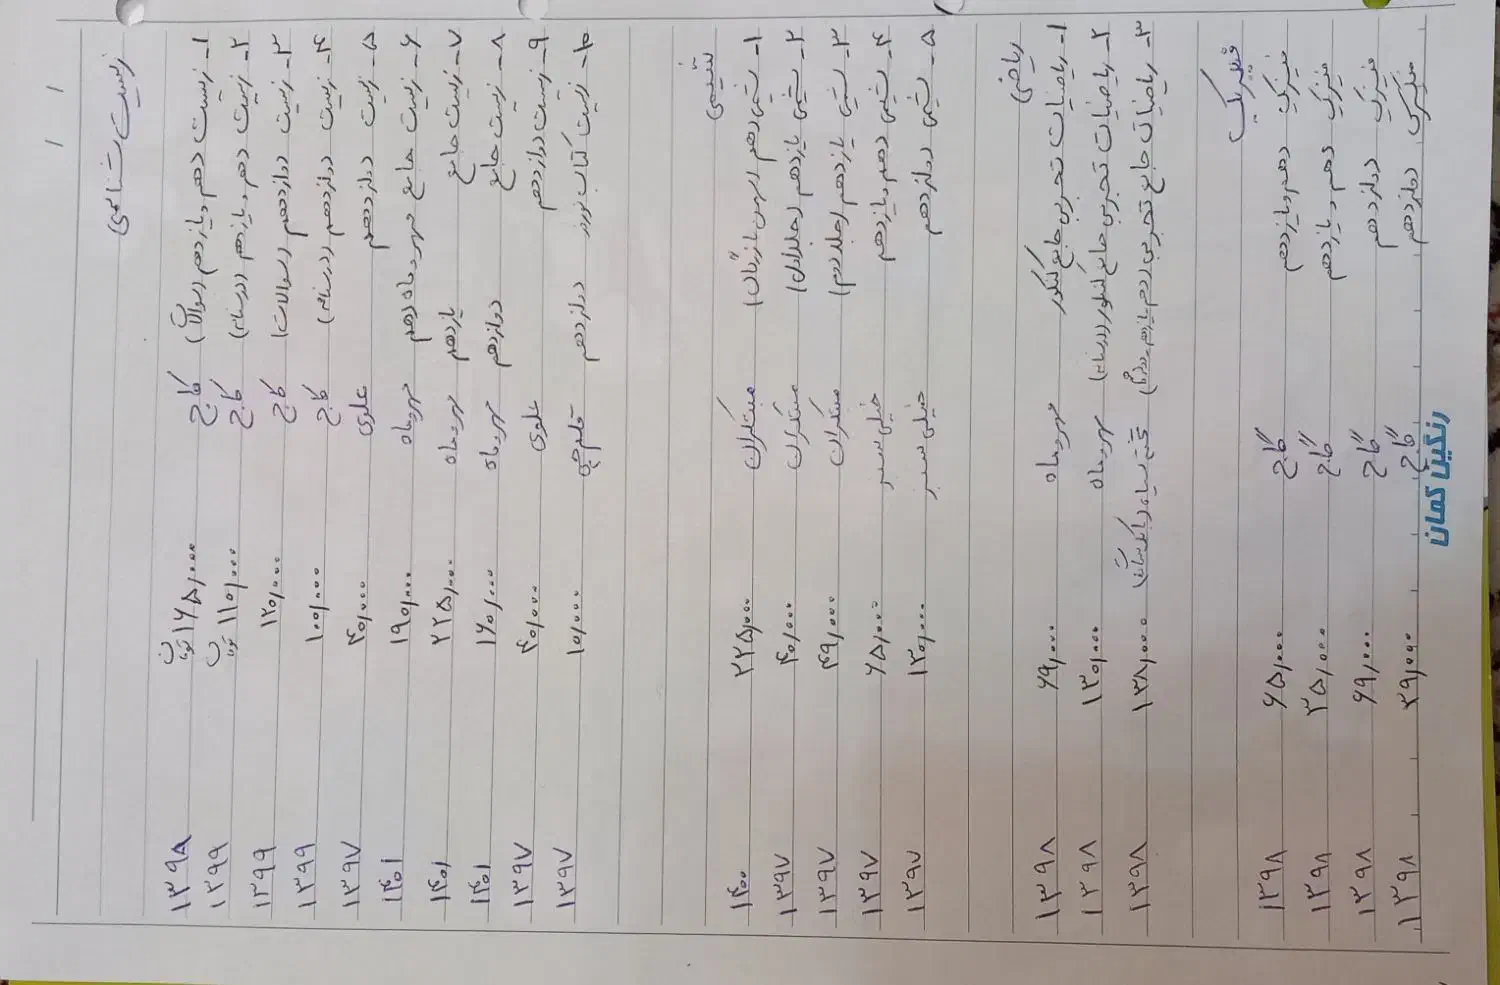 زیست شناسی
۱- زیست دهم و یازدهم (سوالات) گاج ۱۶۵/۰۰۰ تومان ۱۳۹۸
۲- زیست دهم و یازدهم (درسنامه) گاج ۱۱۰/۰۰۰ تومان ۱۳۹۹
۳- زیست دوازدهم (سوالات) گاج ۱۲۰/۰۰۰ ۱۳۹۹
۴- زیست دوازدهم (درسنامه) گاج ۱۰۰/۰۰۰ ۱۳۹۹
۵- زیست دوازدهم علوی ۴۰/۰۰۰ ۱۳۹۷
۶- زیست جامع مهروماه دهم مهروماه ۱۹۰/۰۰۰ ۱۴۰۱
۷- زیست جامع یازدهم مهروماه ۲۲۵/۰۰۰ ۱۴۰۱
۸- زیست جامع دوازدهم مهروماه ۱۶۰/۰۰۰ ۱۴۰۱
۹- زیست دوازدهم علوی ۴۰/۰۰۰ ۱۳۹۷
۱۰- زیست کتاب زرد دوازدهم قلم چی ۱۰/۰۰۰ ۱۳۹۷
شیمی
۱- شیمی دهم (بهمن بازرگان) مبتکران ۲۲۵/۰۰۰ ۱۴۰۰
۲- شیمی یازدهم (جلد اول) مبتکران ۴۰/۰۰۰ ۱۳۹۷
۳- شیمی یازدهم (جلد دوم) مبتکران ۴۹/۰۰۰ ۱۳۹۷
۴- شیمی دهم و یازدهم خیلی سبز ۶۵/۰۰۰ ۱۳۹۷
۵- شیمی دوازدهم خیلی سبز ۱۲۰/۰۰۰ ۱۳۹۷
ریاضی
۱- ریاضیات تجربی جامع کنکور مهروماه ۶۹/۰۰۰ ۱۳۹۸
۲- ریاضیات تجربی جامع کنکور (درسنامه) مهروماه ۱۳۰/۰۰۰ ۱۳۹۸
۳- ریاضیات جامع تجربی (دهم یازدهم دوازدهم) تخته سیاه ۱۳۸/۰۰۰ ۱۳۹۸
فیزیک
فیزیک دهم و یازدهم گاج ۶۵/۰۰۰ ۱۳۹۸
فیزیک دهم و یازدهم گاج ۳۵/۰۰۰ ۱۳۹۸
فیزیک دوازدهم گاج ۶۹/۰۰۰ ۱۳۹۸
فیزیک دوازدهم گاج ۳۹/۰۰۰ ۱۳۹۸
رنگین کمان